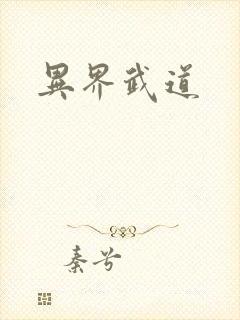 異界武道
秦兮